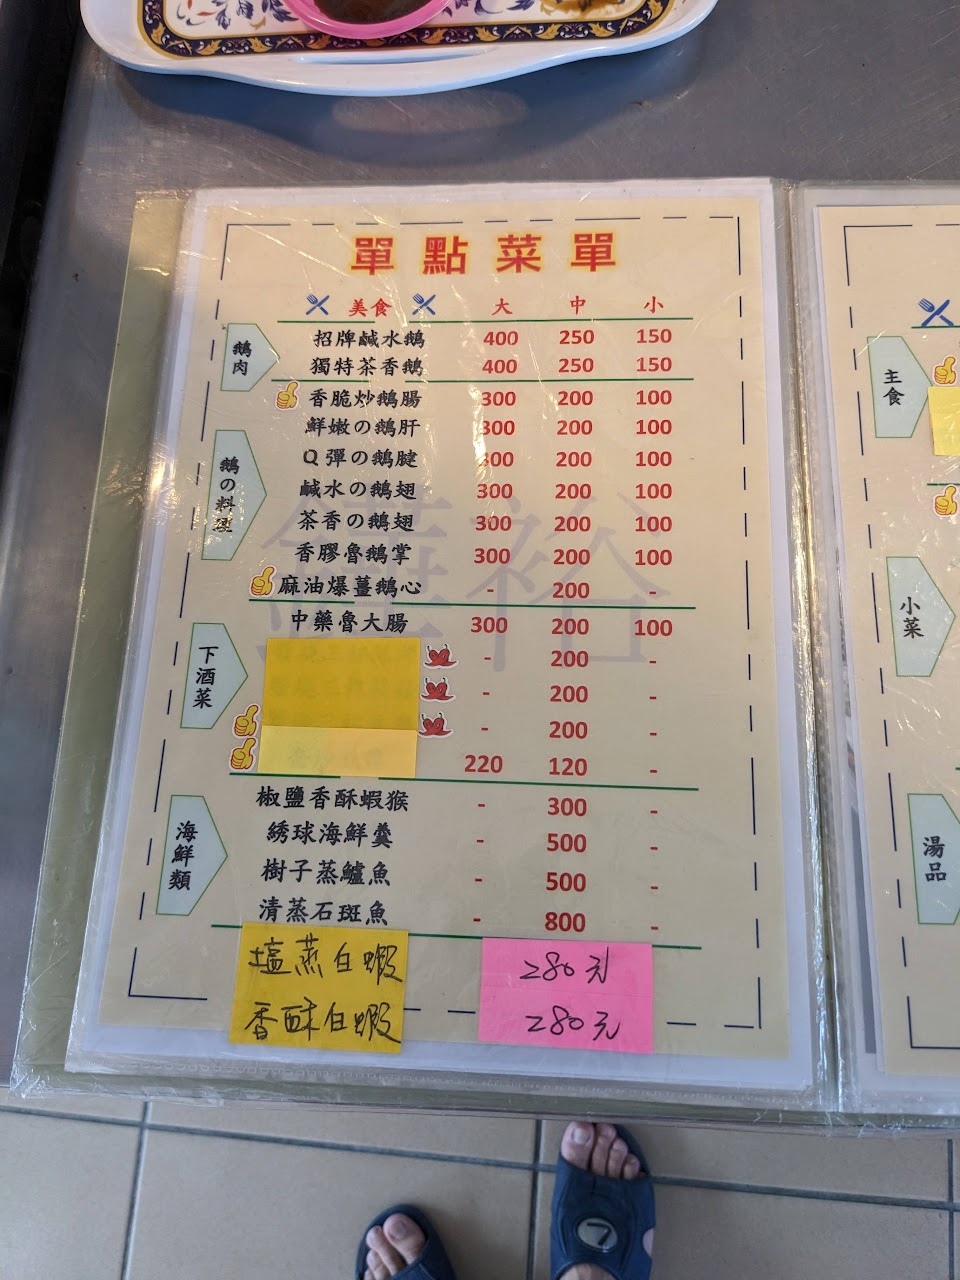 單點菜單
美食 大 中 小
鵝肉
招牌鹹水鵝 400 250 150
獨特茶香鵝 400 250 150
鵝の料理
香脆炒鵝腸 300 200 100
鮮嫩の鵝肝 300 200 100
Q彈の鵝腱 300 200 100
鹹水の鵝翅 300 200 100
茶香の鵝翅 300 200 100
香膠魯鵝掌 300 200 100
麻油爆薑鵝心 - 200 -
下酒菜
中藥魯大腸 300 200 100
- 200 -
- 200 -
- 200 -
220 120 -
海鮮類
椒鹽香酥蝦猴 - 300 -
綉球海鮮羹 - 500 -
樹子蒸鱸魚 - 500 -
清蒸石斑魚 - 800 -
塩蒸白蝦 280元
香酥白蝦 280元
主食
小菜
湯品